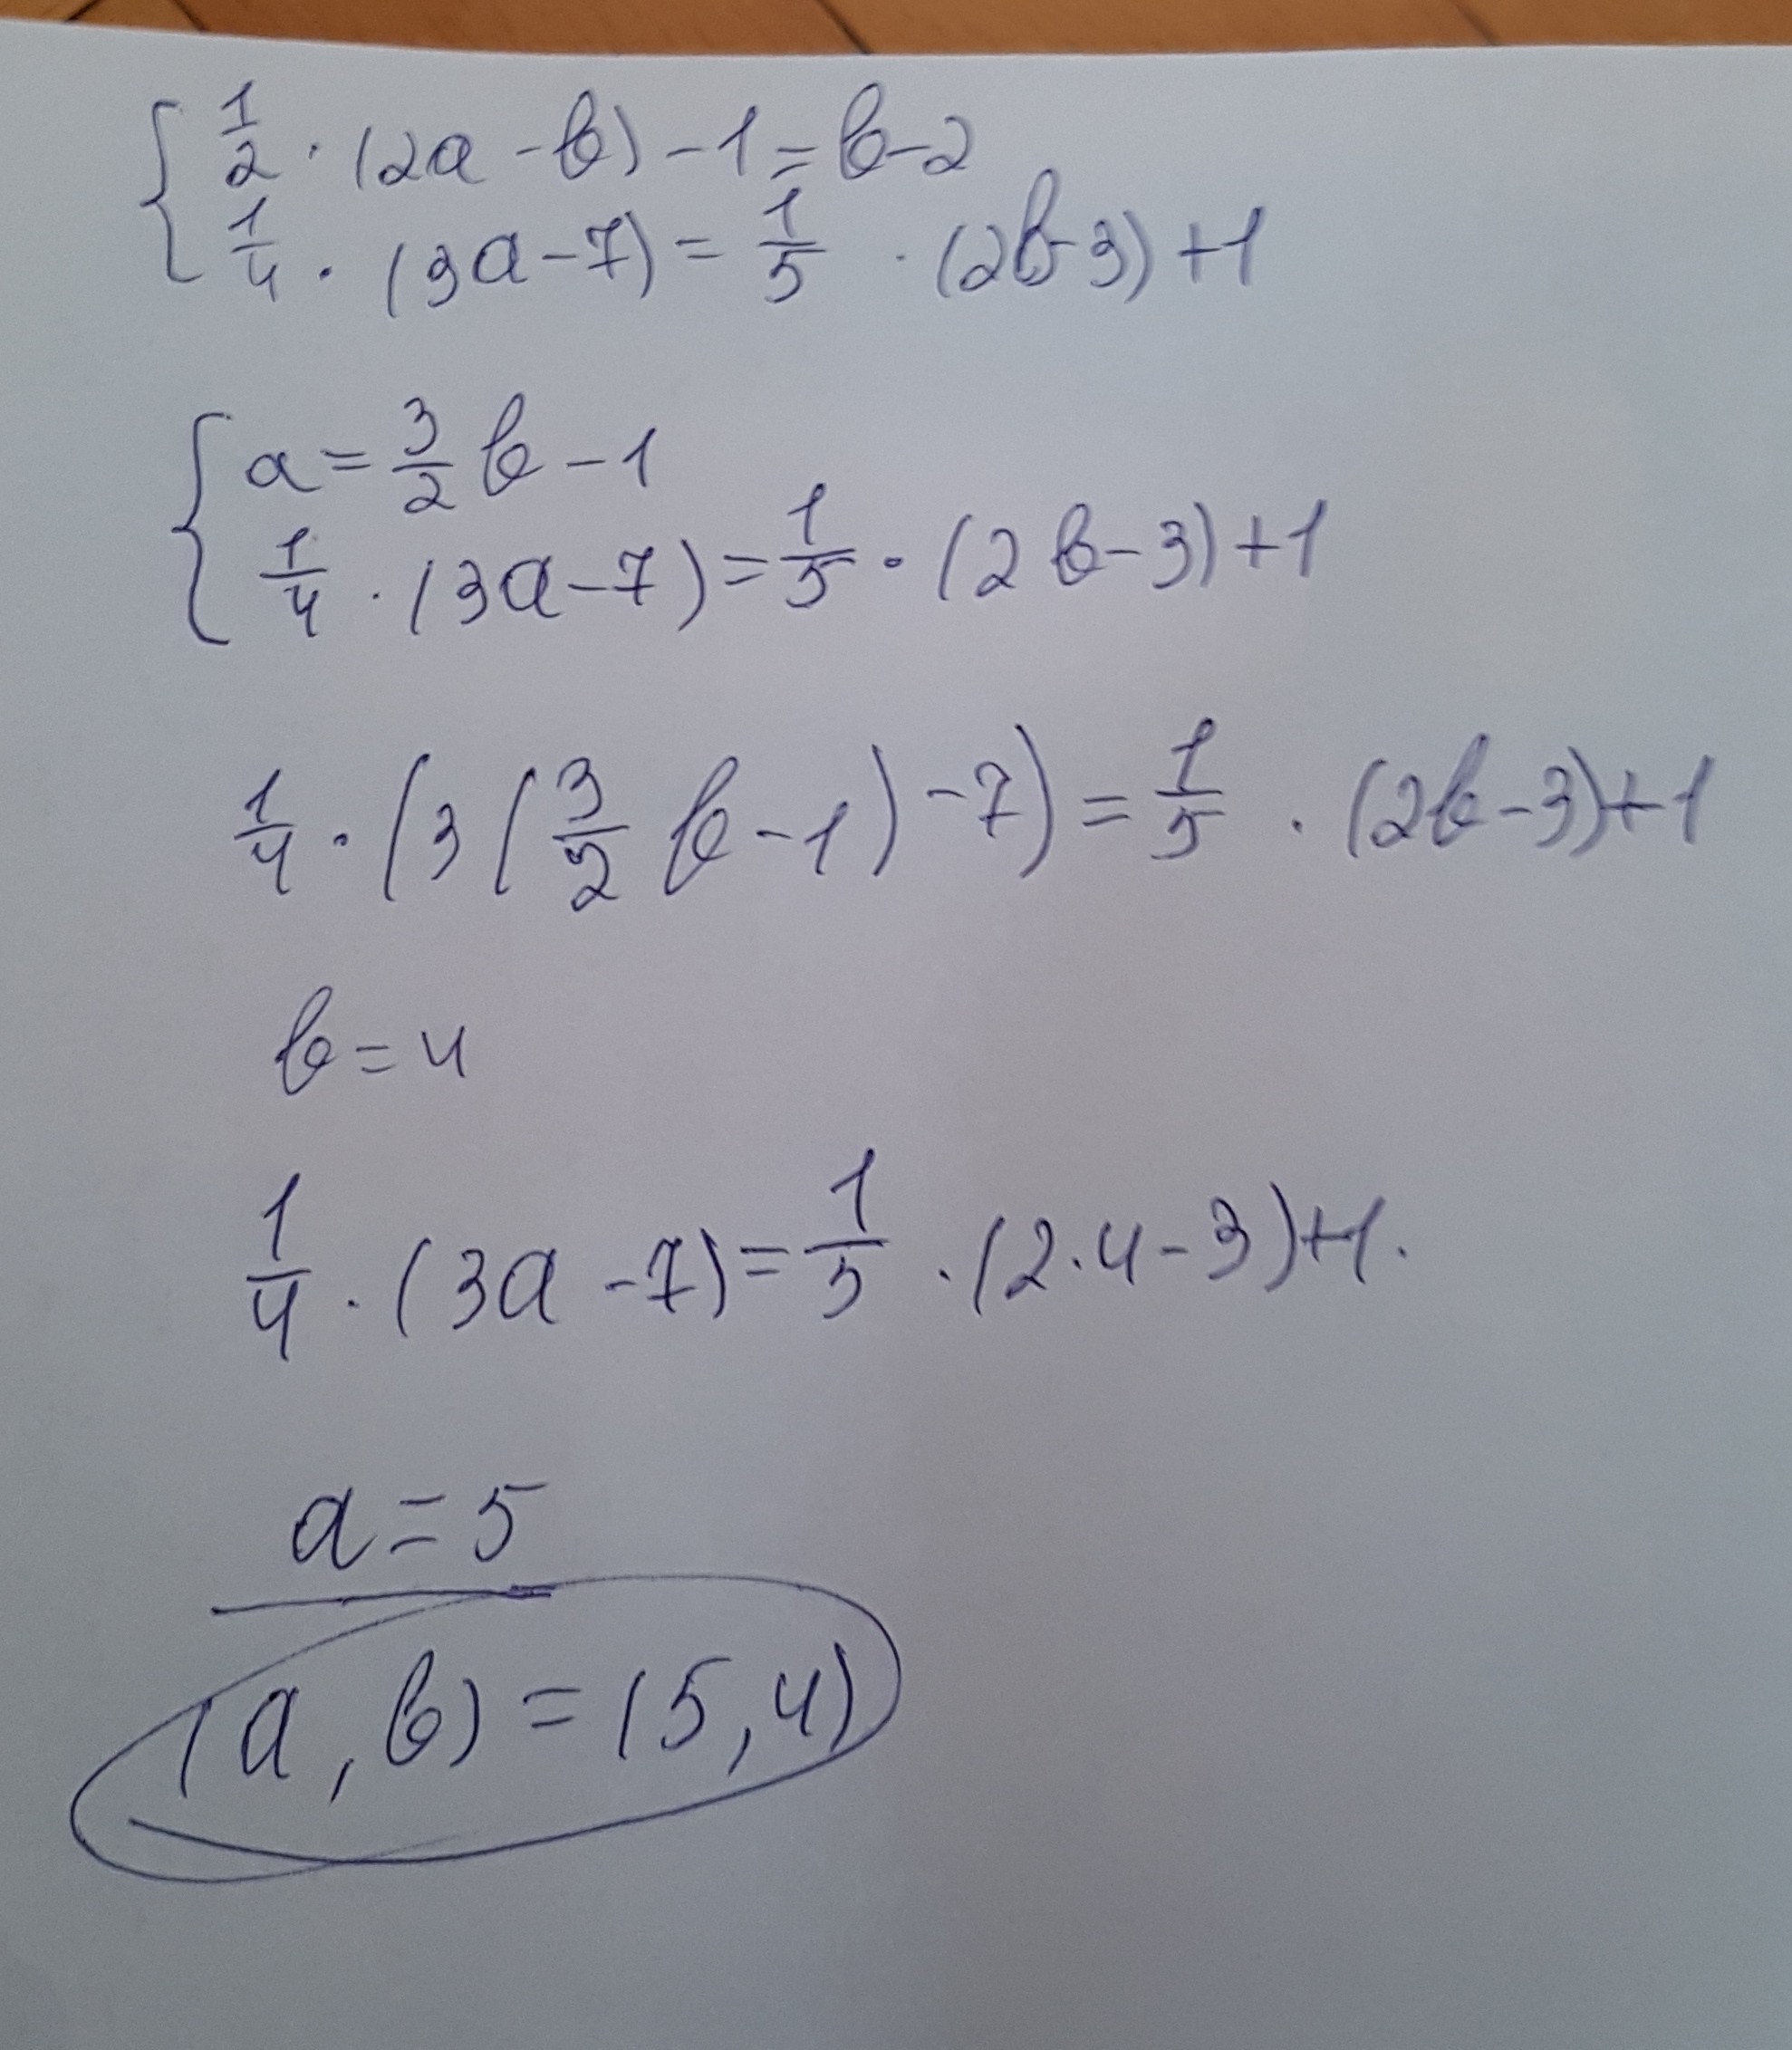 { 1/2 · (2a - b) - 1 = b - 2
1/4 · (3a - 7) = 1/5 · (2b - 3) + 1
{ a = 3/2 b - 1
1/4 · (3a - 7) = 1/5 · (2b - 3) + 1
1/4 · (3(3/2 b - 1) - 7) = 1/5 · (2b - 3) + 1
b = 4
1/4 · (3a - 7) = 1/5 · (2·4 - 3) + 1.
a = 5
(a, b) = (5, 4)